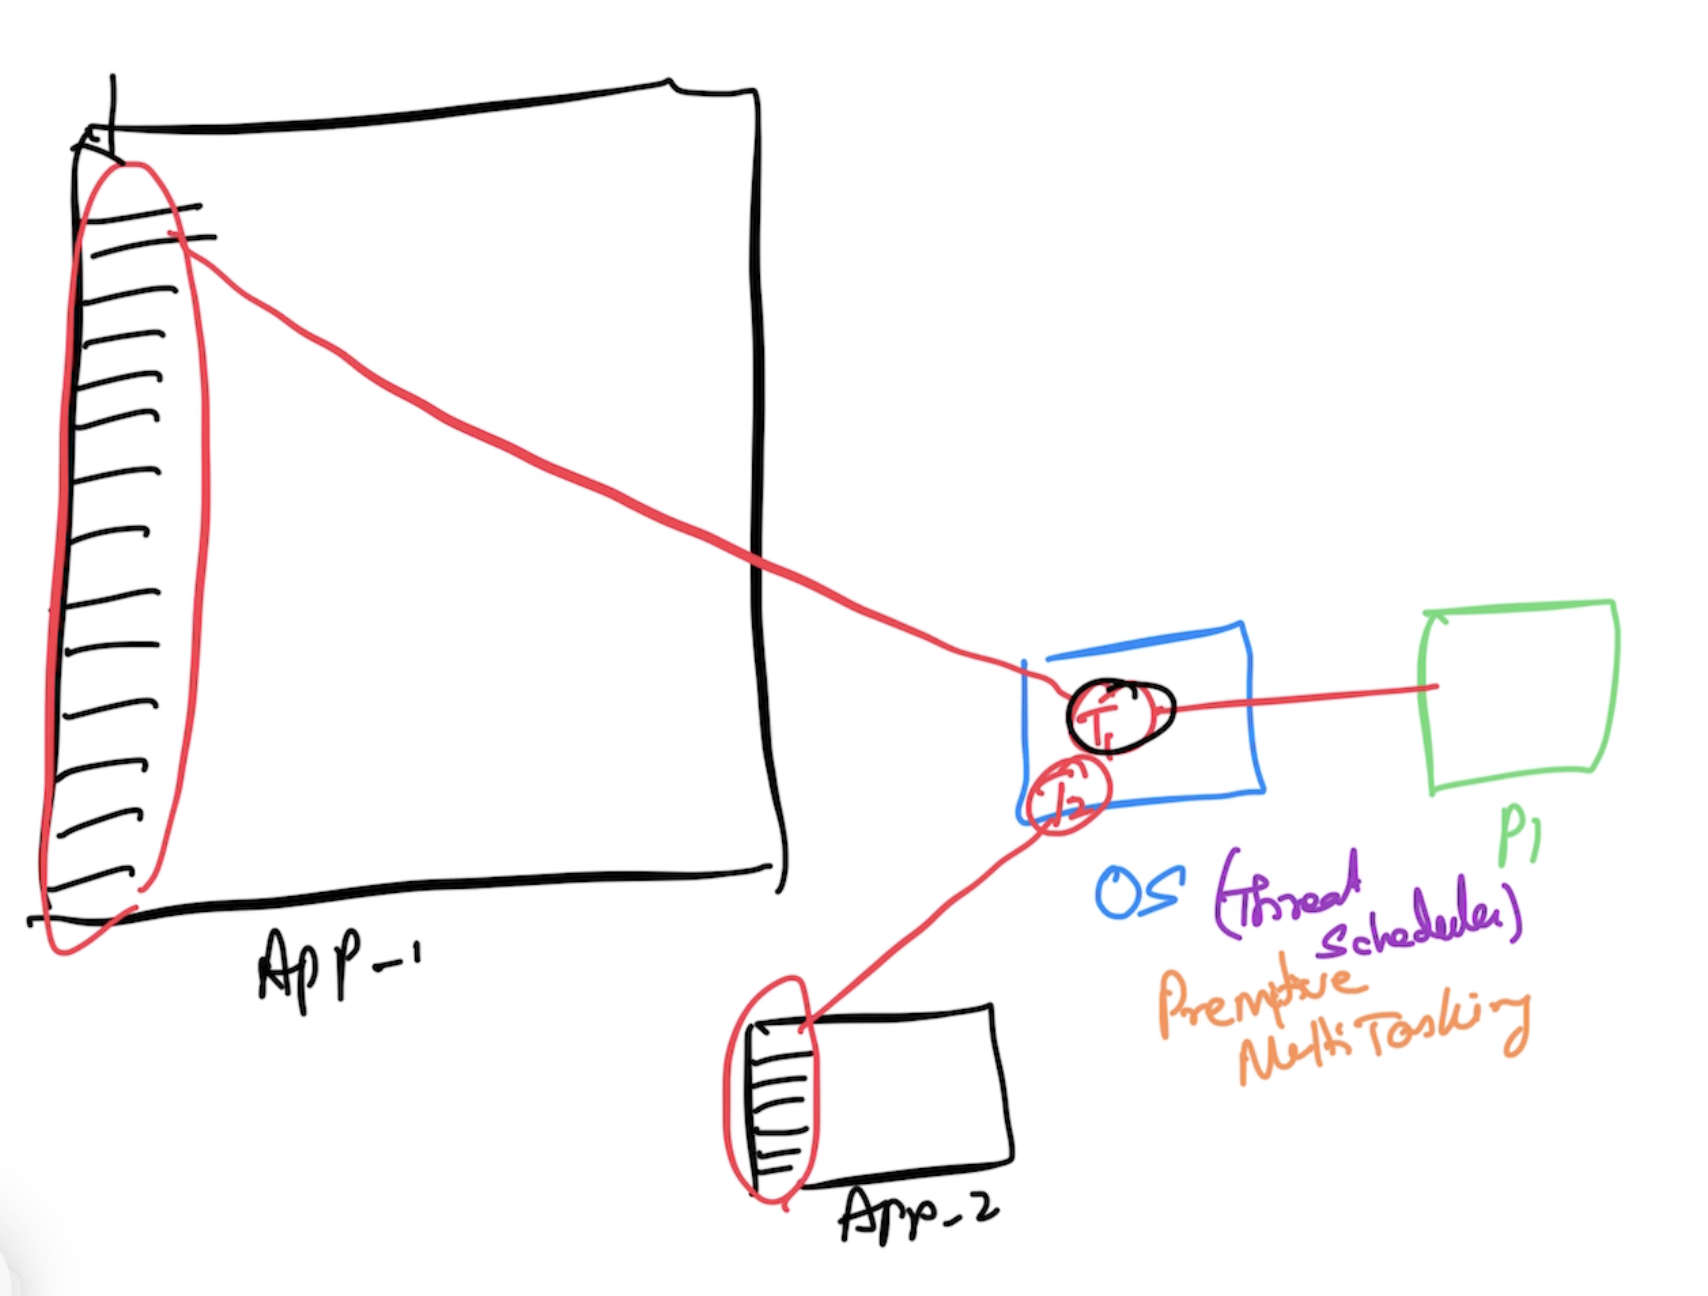 App-1
T1
T2
P1
OS (Thread
Scheduler)
Premptive
MultiTasking
App-2